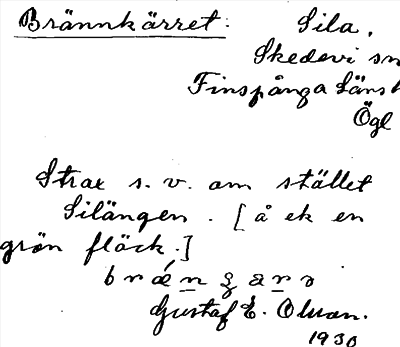 Brännkärret: Sila.
Skedevi sn
Finspånga Länsh
Ögl
Strax s. v. om stället
Silängen. [å ek en
grön fläck.]
Gustaf E. Olsson.
1930